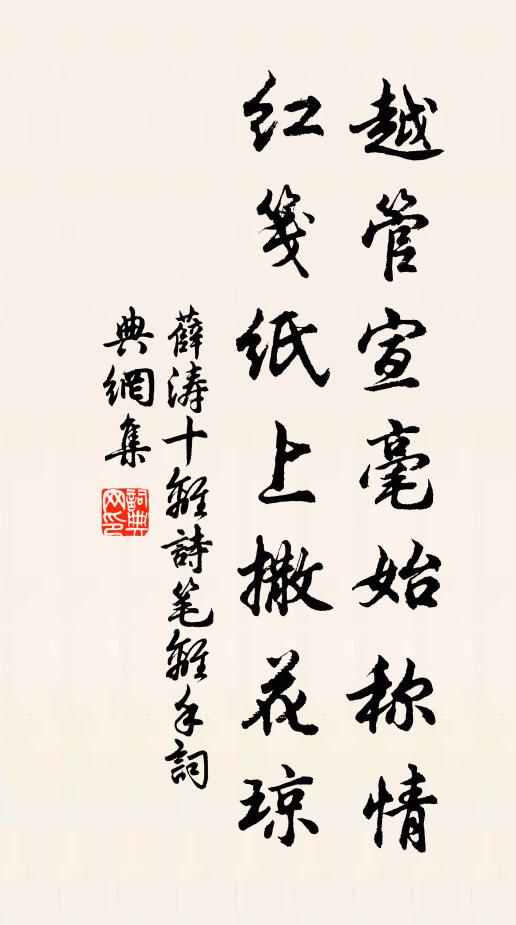 越管宣毫始称情
红笺纸上撒花琼
薛涛十离詩笔离手詞
典網集
詞典网印